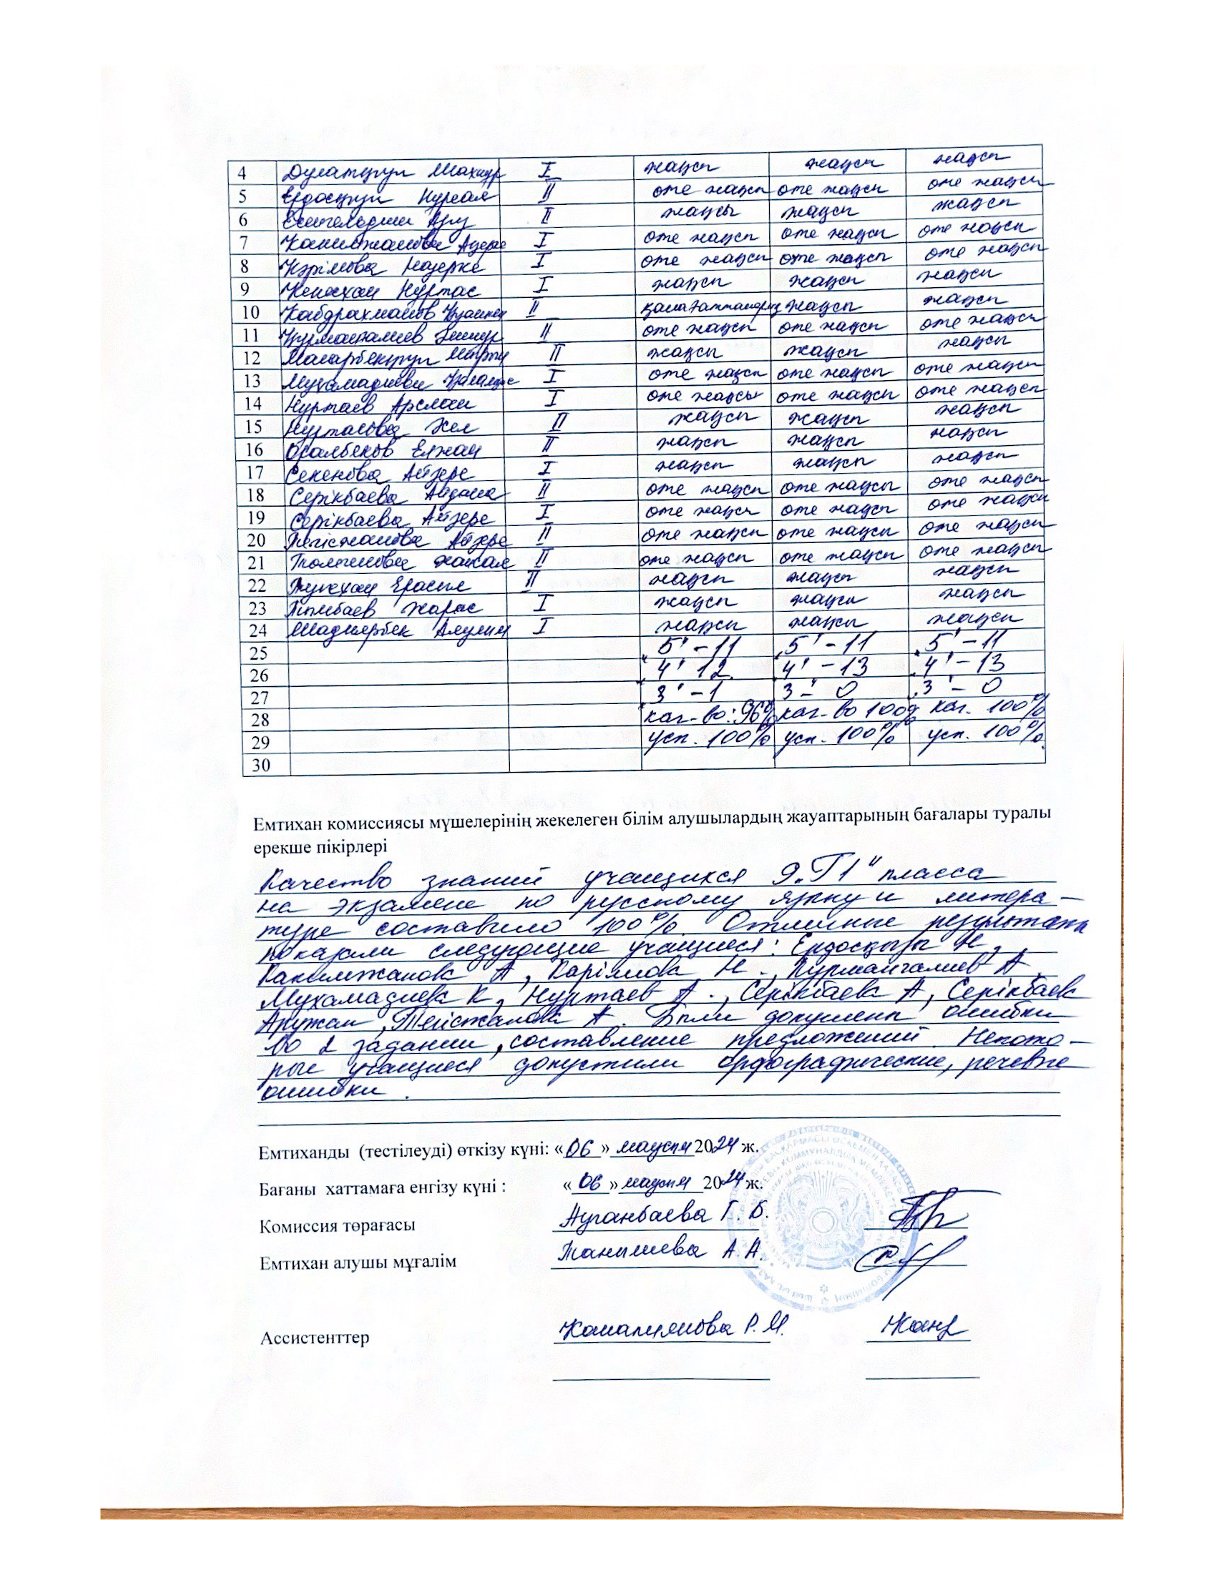 4 Дулатқызы I жақсы жақсы жақсы
5 Ердосқызы Нурсая II өте жақсы өте жақсы өте жақсы
6 Ару II жақсы жақсы жақсы
7 Канимжанова I өте жақсы өте жақсы өте жақсы
8 Кәрімова Назерке I өте жақсы өте жақсы өте жақсы
9 Кеңесхан Нұртас I жақсы жақсы жақсы
10 Кабдрахманов II қанағаттанарлық жақсы жақсы
11 Курмангалиев II өте жақсы өте жақсы өте жақсы
12 II жақсы жақсы жақсы
13 Мухамадиева I өте жақсы өте жақсы өте жақсы
14 Нуртаев Арслан I өте жақсы өте жақсы өте жақсы
15 II жақсы жақсы жақсы
16 Оралбеков Елжан II жақсы жақсы жақсы
17 Секенова Айзере I жақсы жақсы жақсы
18 Серікбаева II өте жақсы өте жақсы өте жақсы
19 Серікбаева I өте жақсы өте жақсы өте жақсы
20 II өте жақсы өте жақсы өте жақсы
21 II өте жақсы өте жақсы өте жақсы
22 Ерасыл II жақсы жақсы жақсы
23 Жарас I жақсы жақсы жақсы
24 I жақсы жақсы жақсы
25 "5" - 11 "5" - 11 "5" - 11
26 "4" 12 "4" - 13 "4" - 13
27 "3" - 1 "3" - 0 "3" - 0
28 кач-во: 96% кач-во 100% кач. 100%
29 усп. 100% усп. 100% усп. 100%.
30
Емтихан комиссиясы мүшелерінің жекелеген білім алушылардың жауаптарының бағалары туралы
ерекше пікірлері
Качество знаний учащихся 9 "Г1" класса
на экзамене по русскому языку и литера-
туре составило 100%. Отличные результаты
показали следующие учащиеся: Ердосқызы Н,
Канимжанова А, Кәрімова Н., Курмангалиев А,
Мухамадиева К, Нуртаев А., Серікбаева А, Серікбаева
Аружан, А. Были допущены ошибки
во 2 задании, составление предложений. Некото-
рые учащиеся допустили орфографические, речевые
ошибки.
Емтиханды (тестілеуді) өткізу күні: «06» маусым 2024 ж.
Бағаны хаттамаға енгізу күні : «06» маусым 2024 ж.
Комиссия төрағасы Ауганбаева Г. Б.
Емтихан алушы мұғалім Танышева А. А.
Ассистенттер Р. М.